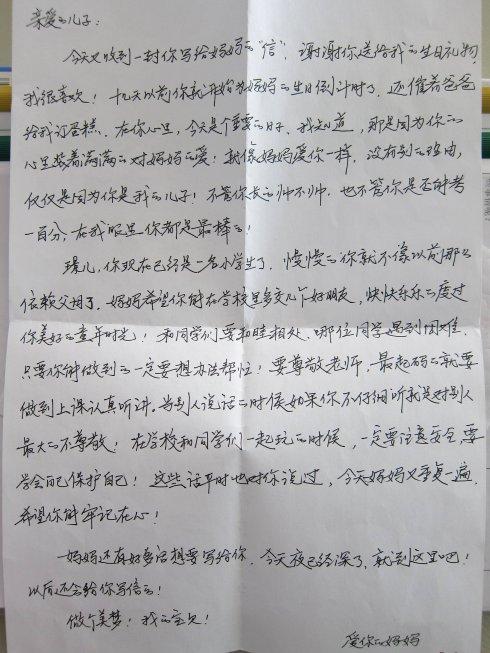 亲爱的儿子：
今天又收到一封你写给妈妈的“信”，谢谢你送给我的生日礼物，
我很喜欢！十几天以前你就开始为妈妈的生日倒计时了，还催着爸爸
给我订蛋糕。在你心里，今天是个重要的日子，我知道，那是因为你的
心里装着满满的对妈妈的爱！就像妈妈爱你一样，没有别的理由，
仅仅是因为你是我的儿子！不管你长的帅不帅，也不管你是否能考
一百分，在我眼里你都是最棒的！
儿，你现在已经是一名小学生了，慢慢的你就不像以前那么
依赖父母了。妈妈希望你能在学校里多交几个好朋友，快快乐乐的度过
你美好的童年时光！和同学们要和睦相处，哪位同学遇到困难，
只要你能做到的一定要想办法帮忙！要尊敬老师，最起码的就要
做到上课认真听讲。当别人说话的时候如果你不仔细听就是对别人
最大的不尊敬！在学校和同学们一起玩的时候，一定要注意安全，要
学会自己保护自己！这些话平时也对你说过，今天妈妈又重复一遍，
希望你能牢记在心！
妈妈还有好多话想要写给你，今天夜已经深了，就到这里吧！
以后还会给你写信的！
做个美梦！我的宝贝！
爱你的妈妈